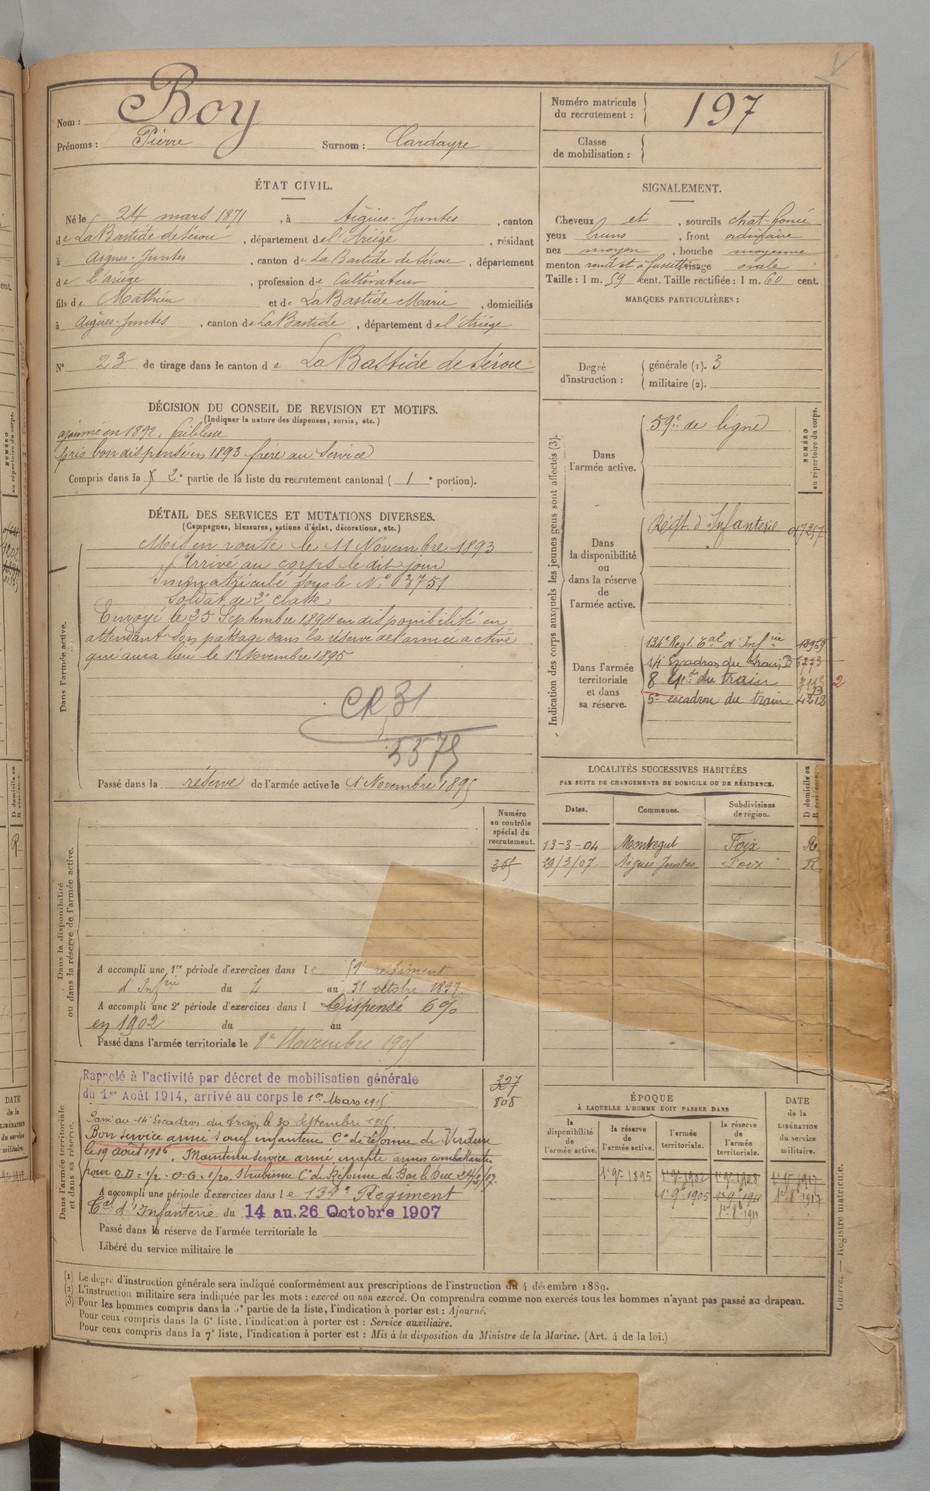 Nom : Boy
Prénoms : Pierre Surnom : Cardayre
Numéro matricule du recrutement : 197
Classe de mobilisation :
ÉTAT CIVIL.
Né le 24 mars 1871, à Aigues-Juntes, canton
de La Bastide de Sérou, département de l'Ariège, résidant
à Aigues-Juntes, canton de La Bastide de Sérou, département
de l'Ariège, profession de Cultivateur
fils de Mathieu et de La Bastide Marie, domiciliés
à Aigues-Juntes, canton de La Bastide, département de l'Ariège
N° 23 de tirage dans le canton de La Bastide de Sérou
SIGNALEMENT.
Cheveux et, sourcils chat-foncé
yeux bruns, front ordinaire
nez moyen, bouche moyenne
menton rond et à fossette, visage ovale
Taille : 1 m. 59 cent. Taille rectifiée : 1 m. 60 cent.
MARQUES PARTICULIÈRES :
Degré d'instruction : générale (1). 3
militaire (2).
DÉCISION DU CONSEIL DE REVISION ET MOTIFS.
(Indiquer la nature des dispenses, sursis, etc.)
ajourné en 1892. faiblesse
pris bon dispensé en 1893 frère au service
Compris dans la 2e partie de la liste du recrutement cantonal (1e portion).
DÉTAIL DES SERVICES ET MUTATIONS DIVERSES.
(Campagnes, blessures, actions d'éclat, décorations, etc.)
Dans l'armée active.
Mis en route le 11 Novembre 1893
Arrivé au corps le dit jour
Immatriculé sous le N° 03751
Soldat de 2e classe
Envoyé le 25 Septembre 1894 en disponibilité en
attendant son passage dans la réserve de l'armée active
qui aura lieu le 1er Novembre 1895
CR 31
5575
Passé dans la réserve de l'armée active le 1 Novembre 1895
Indication des corps auxquels les jeunes gens sont affectés (3).
NUMÉRO au répertoire du corps.
Dans l'armée active.
59e de ligne
Dans la disponibilité ou dans la réserve de l'armée active.
Régt. d'Infanterie
Dans l'armée territoriale et dans sa réserve.
134e Régt Eal d'Infrie
14e Escadron du train
8 du train
5e escadron du train 4212
2
LOCALITÉS SUCCESSIVES HABITÉES
PAR SUITE DE CHANGEMENTS DE DOMICILE OU DE RÉSIDENCE.
Dates. Communes. Subdivisions de région. D domicile ou R résidence.
13-3-04 Montégut Foix R
29/3/07 Aigues Juntes Foix R
Dans la disponibilité ou dans la réserve de l'armée active.
Numéro au contrôle spécial du recrutement.
A accompli une 1re période d'exercices dans le 59 régiment
d'Infrie du 4 au 31 octobre 1897
A accompli une 2e période d'exercices dans l Dispensé 6%
en 1902 du au
Passé dans l'armée territoriale le 1er Novembre 1905
Dans l'armée territoriale et dans sa réserve.
Rappelé à l'activité par décret de mobilisation générale
du 1er Août 1914, arrivé au corps le 1er Mars 1915
327
808
Passé au 14e Escadron du train le 30 septembre
Bon service armé sauf infanterie Con de réforme de Verdun
le 19 août 1916. Maintenu service armé inapte armes combattantes
A accompli une période d'exercices dans le 134e Régiment
Eal d'Infanterie du 14 au 26 Octobre 1907
Passé dans la réserve de l'armée territoriale le
Libéré du service militaire le
ÉPOQUE
À LAQUELLE L'HOMME DOIT PASSER DANS
la disponibilité de l'armée active. la réserve de l'armée active. l'armée territoriale. la réserve de l'armée territoriale. DATE de la LIBÉRATION du service militaire.
1er 9re 1895
1er 9re 1905
(1) Le degré d'instruction générale sera indiqué conformément aux prescriptions de l'instruction du 4 décembre 1889.
(2) L'instruction militaire sera indiquée par les mots : exercé ou non exercé. On comprendra comme non exercés tous les hommes n'ayant pas passé au drapeau.
(3) Pour les hommes compris dans la 5e partie de la liste, l'indication à porter est : Ajourné.
Pour ceux compris dans la 6e liste, l'indication à porter est : Service auxiliaire.
Pour ceux compris dans la 7e liste, l'indication à porter est : Mis à la disposition du Ministre de la Marine. (Art. 4 de la loi.)
Guerre. — Registre matricule.